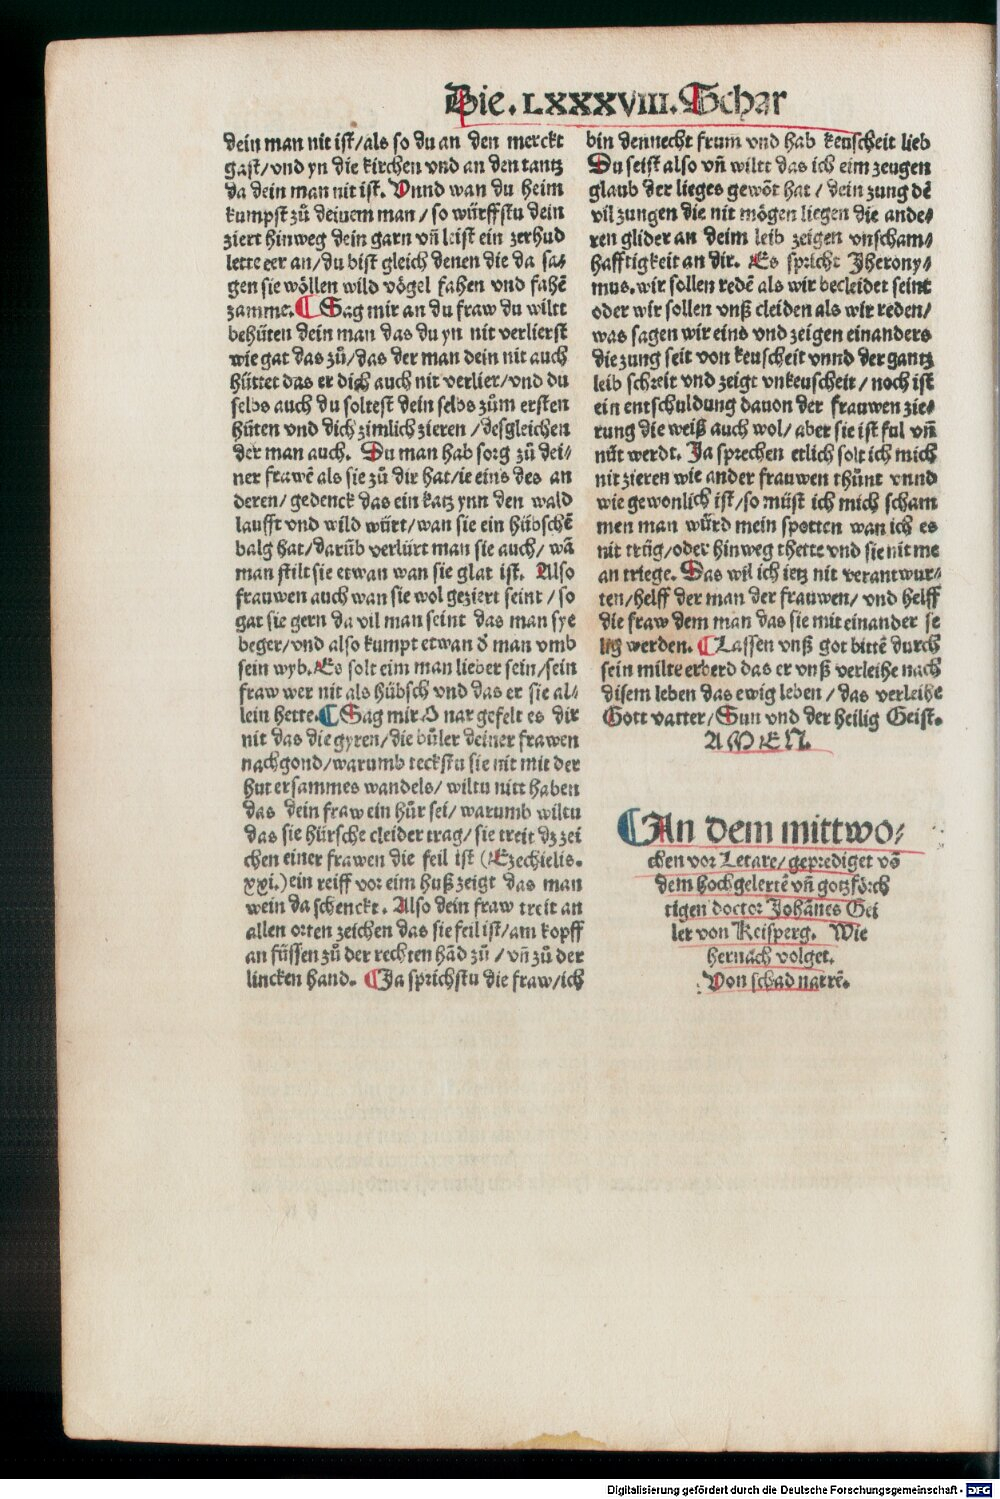 Die. LXXXVIII. Schar
dein man nit ist/als so du an den merckt
gast/vnd yn die kirchen vnd an den tantz
da dein man nit ist. Vnnd wan du heim
kumpst zů deiuem man/so würffstu dein
ziert hinweg dein garn vñ leist ein zerhud
lette eer an/du bist gleich denen die da sa⸗
gen sie wöllen wild vögel fahen vnd fahẽ
zamme. ¶ Sag mir an du fraw du wiltt
behüten dein man das du yn nit verlierst
wie gat das zů/das der man dein nit auch
hüttet das er dich auch nit verlier/vnd du
selbs auch du soltest dein selbs zům ersten
hüten vnd dich zimlich zieren/desgleichen
der man auch. Du man hab sorg zů dei⸗
ner frawẽ als sie zů dir hat/ie eins des an
deren/gedenck das ein katz ynn den wald
laufft vnd wild würt/wan sie ein hübschẽ
balg hat/darũb verlürt man sie auch/wã
man stilt sie etwan wan sie glat ist. Also
frauwen auch wan sie wol geziert seint/so
gat sie gern da vil man seint das man sye
beger/vnd also kumpt etwan ð man vmb
sein wyb. Es solt eim man lieber sein/sein
fraw wer nit als hübsch vnd das er sie al⸗
lein hette. ¶ Sag mir O nar gefelt es dir
nit das die gyren/die bůler deiner frawen
nachgond/warumb teckstu sie nit mit der
hut ersammes wandels/wiltu nitt haben
das dein fraw ein hůr sei/warumb wiltu
das sie hürsche cleider trag/sie treit dz zei
chen einer frawen die feil ist (Ezechielis.
xxi.) ein reiff vor eim huß zeigt das man
wein da schenckt. Also dein fraw treit an
allen orten zeichen das sie feil ist/am kopff
an füssen zů der rechten hãd zů/vñ zů der
lincken hand. ¶ Ja sprichstu die fraw/ich
bin dennecht frum̃ vnd hab keuscheit lieb
Du seist also vñ wiltt das ich eim zeugen
glaub der lieges gewõt hat/dein zung dẽ
vil zungen die nit mögen liegen die ande⸗
ren glider an deim leib zeigen vnscham⸗
hafftigkeit an dir. Es spricht Jherony⸗
mus. wir sollen redẽ als wir becleidet seint
oder wir sollen vnß cleiden als wir reden/
was sagen wir eins vnd zeigen einanders
die zung seit von keuscheit vnnd der gantz
leib schreit vnd zeigt vnkeuscheit/noch ist
ein entschuldung dauon der frauwen zie⸗
rung die weiß auch wol/aber sie ist ful vñ
nüt werdt. Ja sprechen etlich solt ich mich
nit zieren wie ander frauwen thůnt vnnd
wie gewonlich ist/so můst ich mich scham
men man würd mein spotten wan ich es
nit trůg/oder hinweg thette vnd sie nit me
an triege. Das wil ich ietz nit verantwur⸗
ten/helff der man der frauwen/vnd helff
die fraw dem man das sie mit einander se
lig werden. ¶ Lassen vnß got bittẽ durch
sein milte erberd das er vnß verleihe nach
disem leben das ewig leben/das verleihe
Gott vatter/Sun vnd der heilig Geist.
AMEN.
¶ An dem mittwo⸗
chen vor Letare/geprediget võ
dem hochgelertẽ vñ gotzförch
tigen doctor Johãnes Gei
ler von Keisperg. Wie
hernach volget.
Von schad narrẽ.
Digitalisierung gefördert durch die Deutsche Forschungsgemeinschaft - DFG